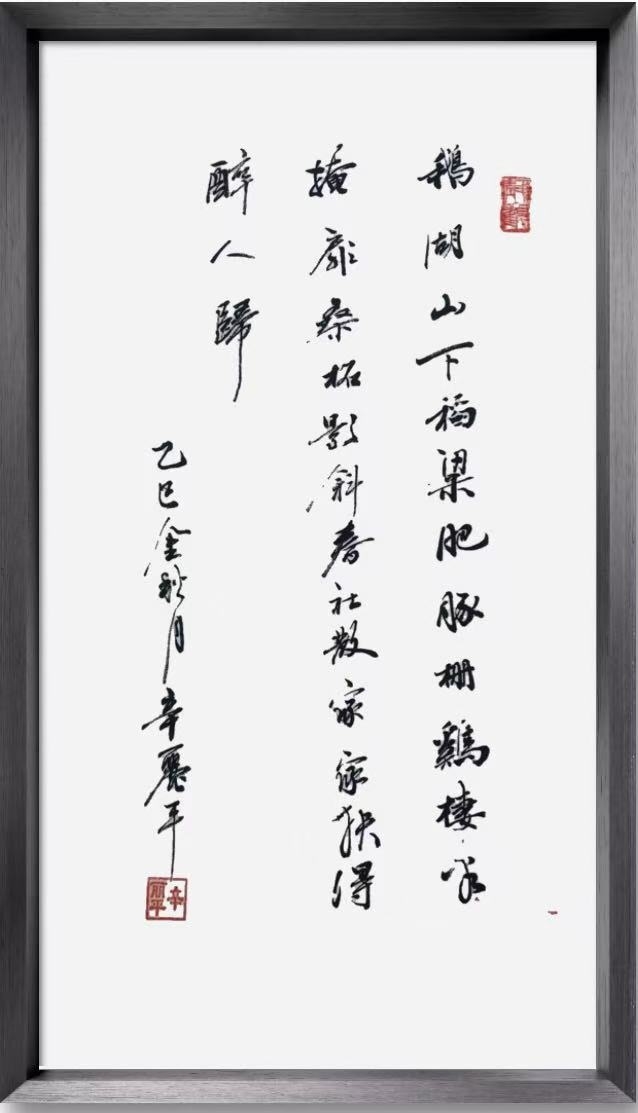 鵝湖山下稻梁肥豚栅鷄棲
掩扉桑柘影斜春社散家家扶得
醉人歸
乙巳金秋月辛麗平
辛丽平